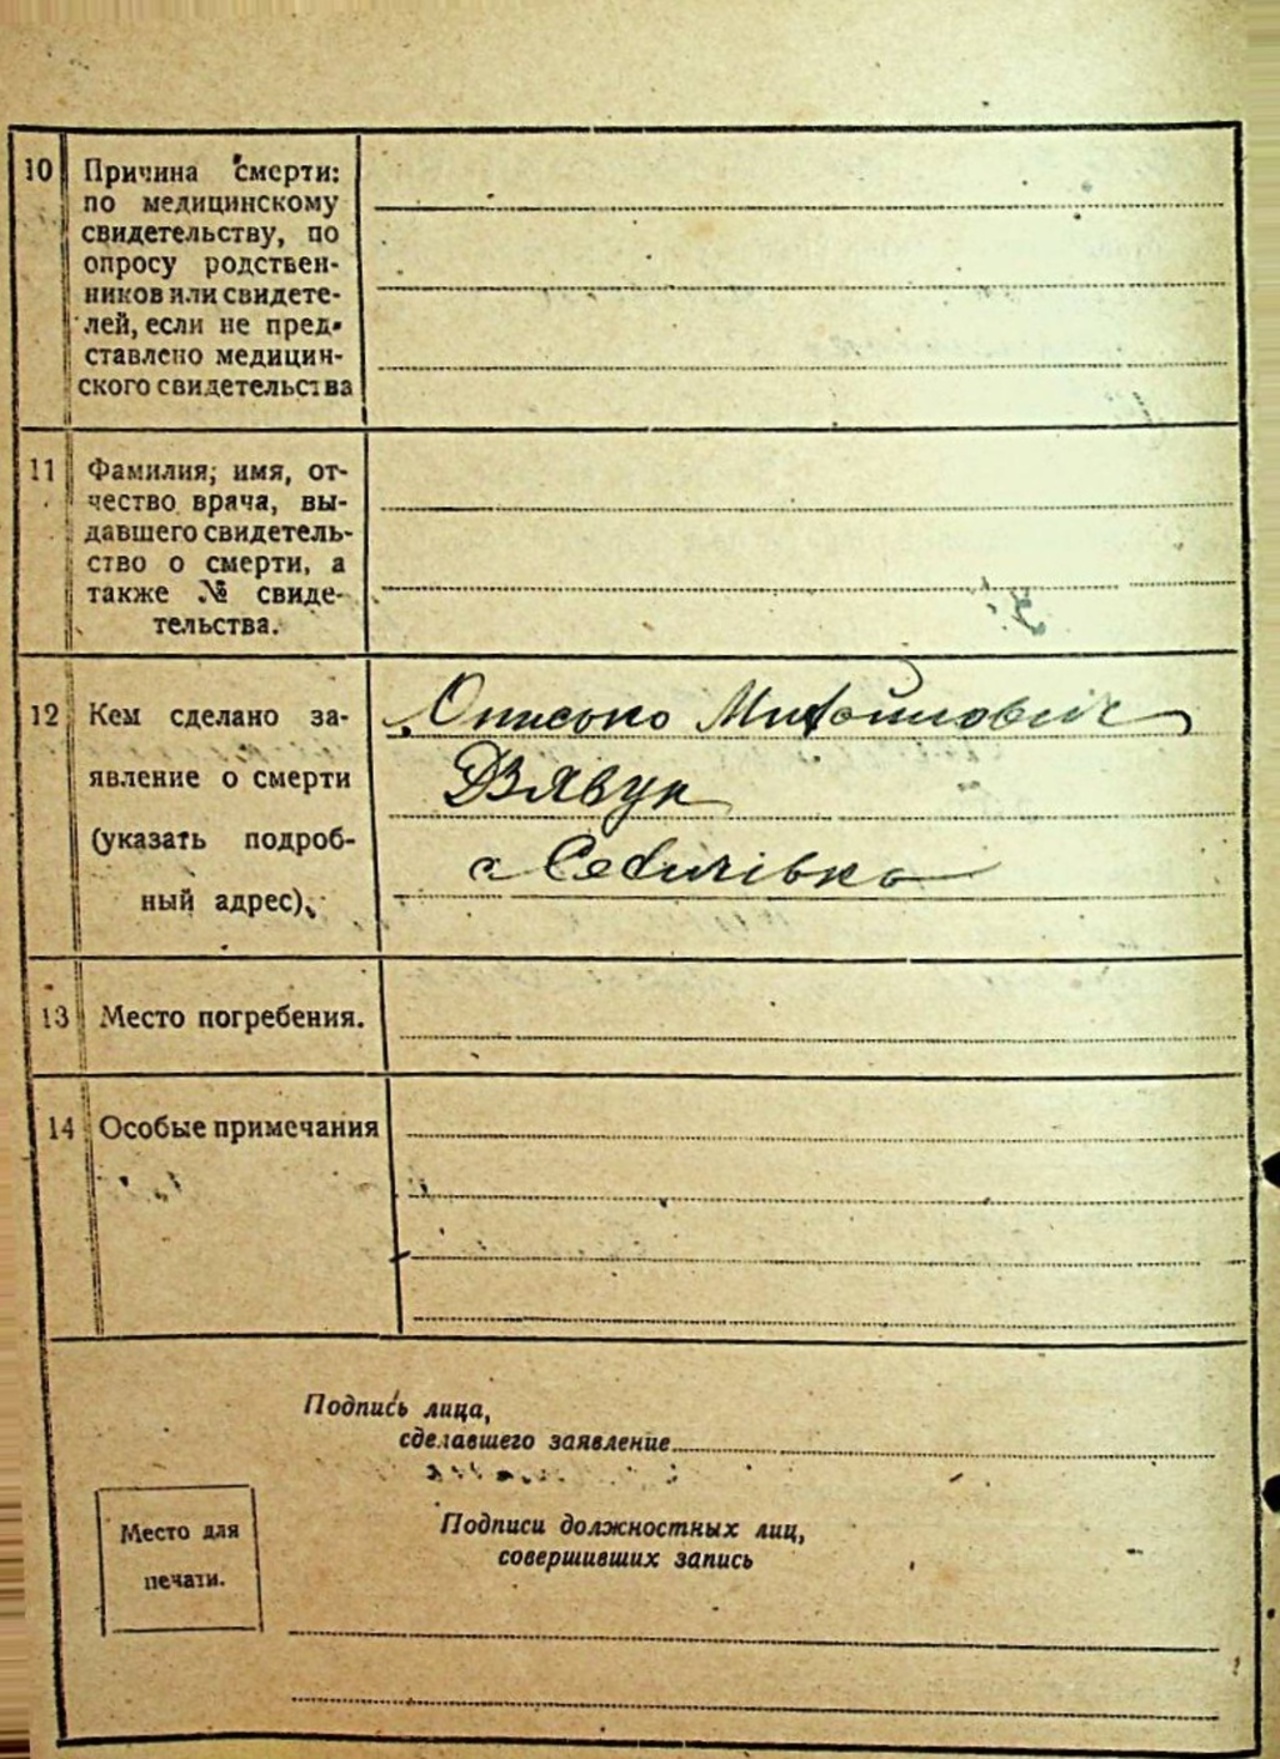 10 Причина смерти:
по медицинскому
свидетельству, по
опросу родствен-
ников или свидете-
лей, если не пред-
ставлено медицин-
ского свидетельства
11 Фамилия, имя, от-
чество врача, вы-
давшего свидетель-
ство о смерти, а
также № свиде-
тельства.
12 Кем сделано за-
явление о смерти
(указать подроб-
ный адрес).
Онисько Михайлович
Дзявук
с
13 Место погребения.
14 Особые примечания
Подпись лица,
сделавшего заявление
Подписи должностных лиц,
совершивших запись
Место для
печати.